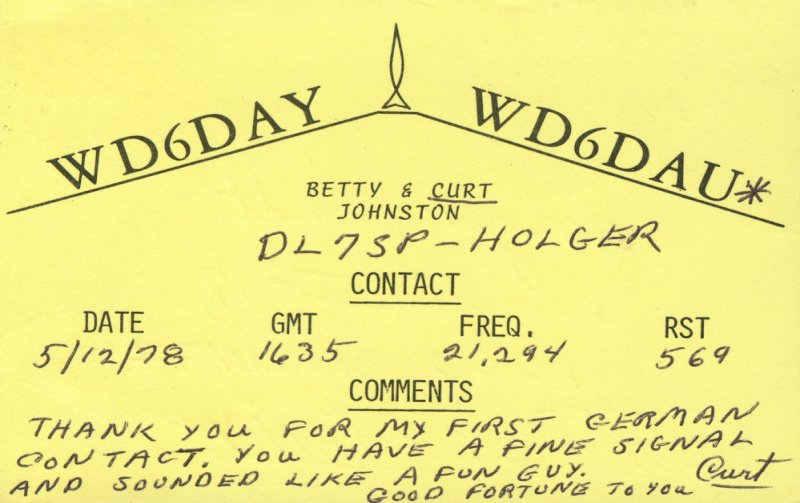 WD6DAY WD6DAU*
BETTY & CURT
JOHNSTON
DL7SP - HOLGER
CONTACT
DATE GMT FREQ. RST
5/12/78 1635 21,294 569
COMMENTS
THANK YOU FOR MY FIRST GERMAN
CONTACT. YOU HAVE A FINE SIGNAL
AND SOUNDED LIKE A FUN GUY.
GOOD FORTUNE TO YOU Curt